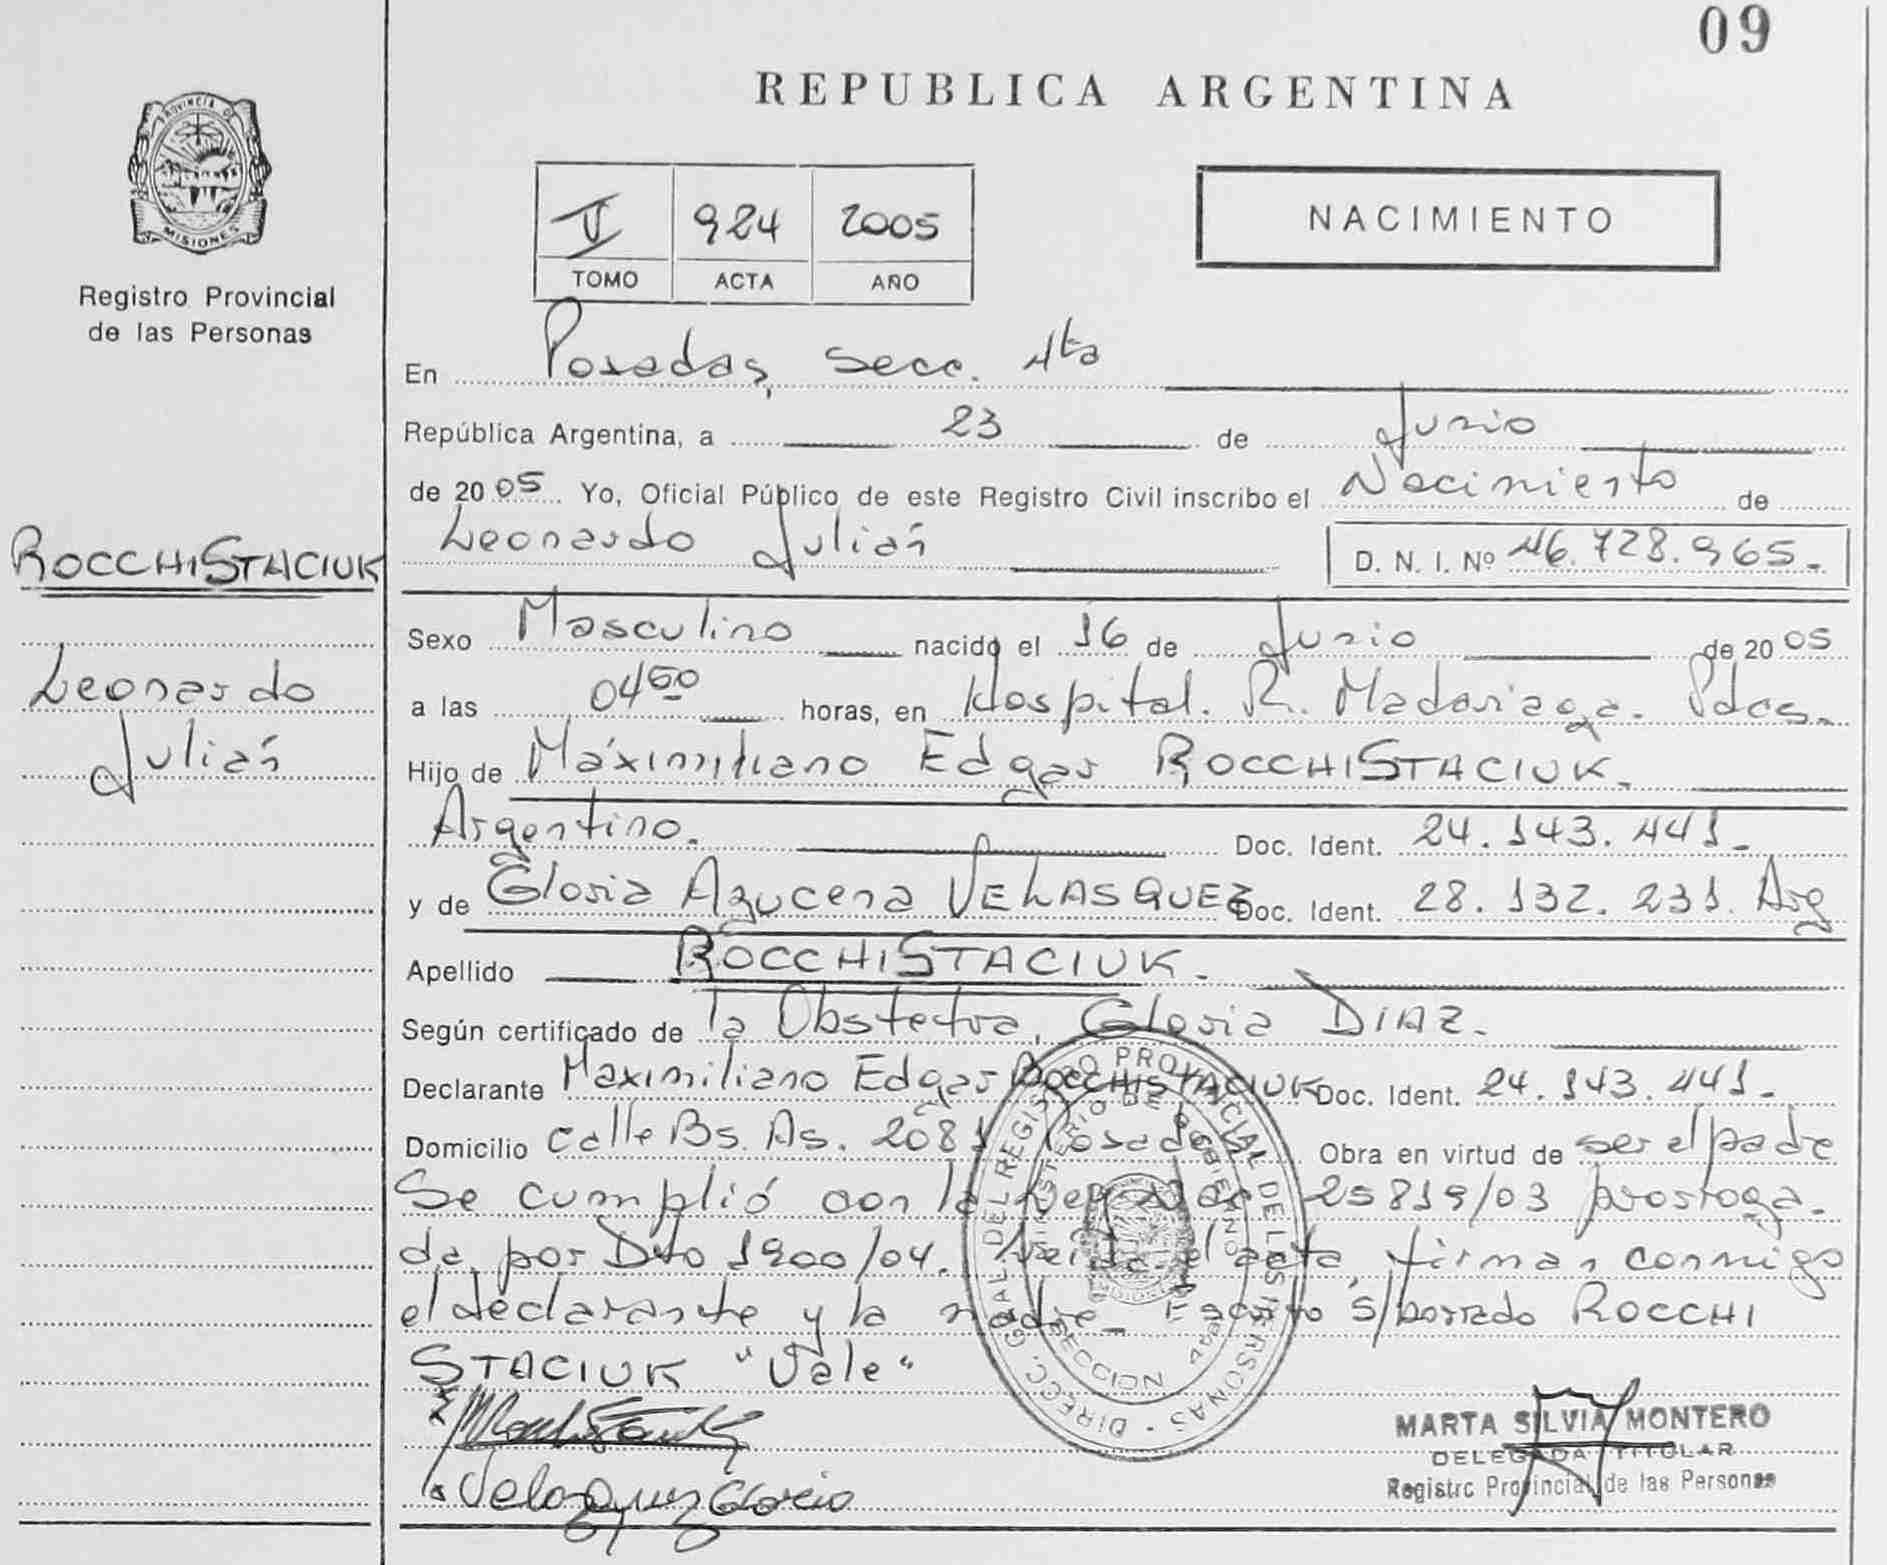 09
REPUBLICA ARGENTINA
PROVINCIA DE
MISIONES
Registro Provincial
de las Personas
V 924 2005
TOMO ACTA AÑO
NACIMIENTO
En Posadas, secc. 4ta
República Argentina, a 23 de Junio
de 2005 Yo, Oficial Público de este Registro Civil inscribo el Nacimiento de
Leonardo Julián D. N. I. Nº 46.728.965.-
ROCCHISTACIUK
Leonardo
Julián
Sexo Masculino nacido el 16 de Junio de 2005
a las 04 horas, en Hospital. R. Madariaga. Pdas.
Hijo de Maximiliano Edgar ROCCHISTACIUK.
Argentino. Doc. Ident. 24.143.441.-
y de Gloria Azucena VELASQUEZ Doc. Ident. 28.132.231. Arg
Apellido ROCCHISTACIUK.-
Según certificado de la Obstetra, Gloria DIAZ.-
Declarante Maximiliano Edgar ROCCHISTACIUK Doc. Ident. 24.143.441.-
Domicilio calle Bs. As. 2081 Posadas Obra en virtud de ser el padre
Se cumplió con la Ley Nac. 25819/03 prorroga-
da por Dto 1900/04. Leída el acta, firman conmigo
el declarante y la madre_ Escrito s/borrado ROCCHI
STACIUK "Vale"
DIRECC. GRAL. DEL REGISTRO PROVINCIAL DE LAS PERSONAS
MINISTERIO DE GOBIERNO
SECCION 4ta
Velazquez Gloria
MARTA SILVIA MONTERO
DELEGADA TITULAR
Registro Provincial de las Personas